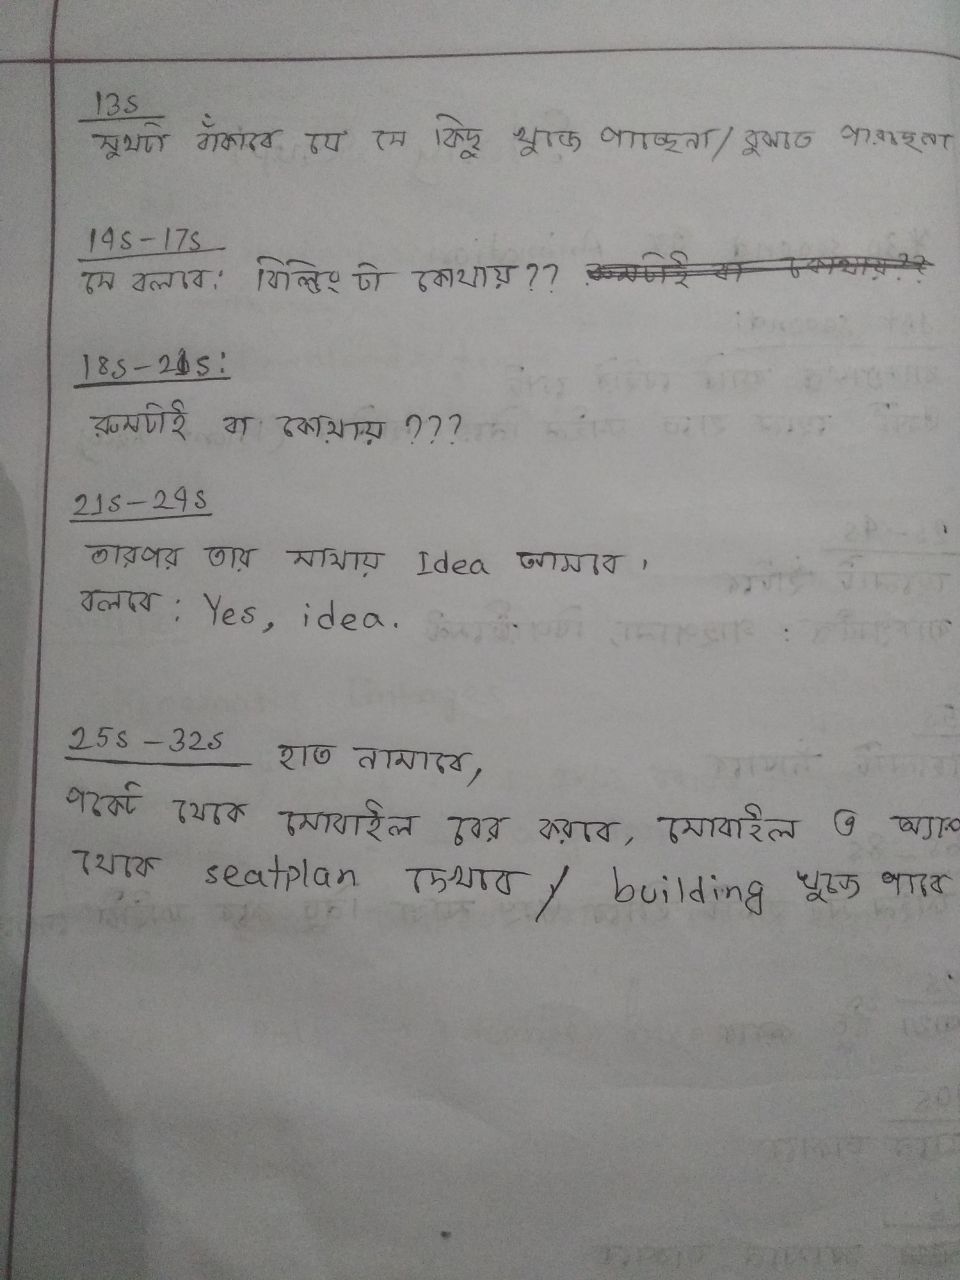 13s
মুখটা বাঁকাবে যে সে কিছু খুজে পাচ্ছেনা/বুঝতে পারছেনা
14s-17s
সে বলবে: বিল্ডিং টা কোথায়??
18s-21s:
রুমটাই বা কোথায়???
21s-24s
তারপর তার মাথায় Idea আসবে।
বলবে: Yes, idea.
25s-32s হাত নামাবে,
পকেট থেকে মোবাইল বের করবে, মোবাইল এ অ্যাপ
থেকে seatplan দেখবে / building খুজে পাবে